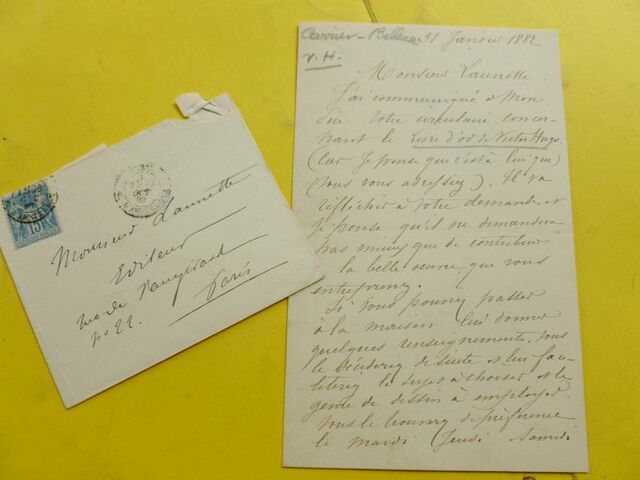 Carrier-Belleuse 31 Janvier 1882
V.H.
Monsieur Launette
J'ai communiqué à Mon
père votre circulaire concer-
nant le Livre d'or de Victor Hugo
(Car Je pense que c'est à lui que)
(Vous vous adressez). Il va
réfléchir à votre demande et
Je pense qu'il ne demandera
pas mieux que de contribuer
la belle œuvre que vous
entreprenez.
Si vous pouvez passer
à la maison lui donner
quelques renseignements, vous
le déciderez de suite et lui faci-
literez le sujet à choisir et le
genre de dessin à employer.
Vous le trouverez de préférence
le mardi Jeudi Samedi
Monsieur Launette
Editeur
rue de Vaugirard
No 22.
Paris
PARIS
15